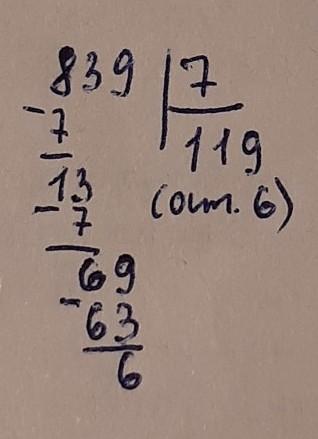 839 | 7
- 7 119
13 (ост. 6)
- 7
69
- 63
6